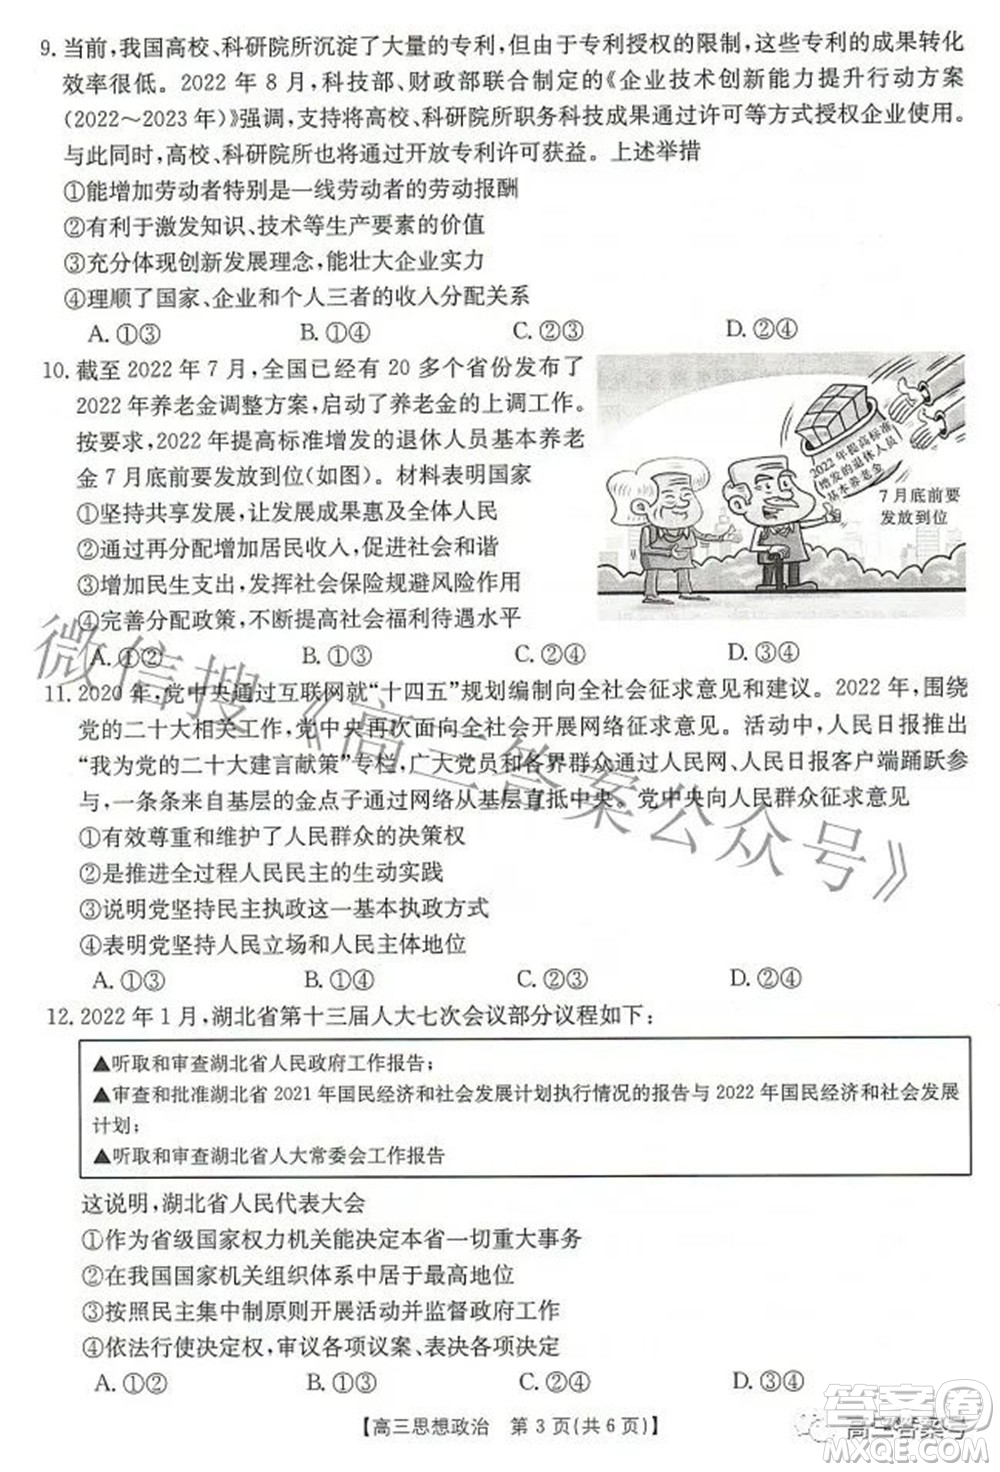 9. 当前,我国高校、科研院所沉淀了大量的专利,但由于专利授权的限制,这些专利的成果转化
效率很低。2022 年 8 月,科技部、财政部联合制定的《企业技术创新能力提升行动方案
(2022～2023年)》强调,支持将高校、科研院所职务科技成果通过许可等方式授权企业使用。
与此同时,高校、科研院所也将通过开放专利许可获益。上述举措
①能增加劳动者特别是一线劳动者的劳动报酬
②有利于激发知识、技术等生产要素的价值
③充分体现创新发展理念,能壮大企业实力
④理顺了国家、企业和个人三者的收入分配关系
A. ①③ B. ①④ C. ②③ D. ②④
10. 截至 2022 年 7 月,全国已经有 20 多个省份发布了
2022 年养老金调整方案,启动了养老金的上调工作。
按要求,2022 年提高标准增发的退休人员基本养老
金 7 月底前要发放到位(如图)。材料表明国家
①坚持共享发展,让发展成果惠及全体人民
②通过再分配增加居民收入,促进社会和谐
③增加民生支出,发挥社会保险规避风险作用
④完善分配政策,提高社会福利待遇水平
A. ①② B. ①③ C. ②④ D. ③④
2022年提高标准
增发的退休人员
基本养老金
7月底前要
发放到位
11. 2020 年,党中央通过互联网就“十四五”规划编制向全社会征求意见和建议。2022 年,围绕
党的二十大相关工作,党中央再次面向全社会开展网络征求意见。活动中,人民日报推出
“我为党的二十大建言献策”专栏,广大党员和群众通过人民网、人民日报客户端踊跃参
与,一条条来自基层的金点子通过网络从基层直抵中央。党中央向人民群众征求意见
①有效尊重和维护了人民群众的决策权
②是推进全过程人民民主的生动实践
③说明党坚持民主执政这一基本执政方式
④表明党坚持人民立场和人民主体地位
A. ①③ B. ①④ C. ②③ D. ②④
12. 2022 年 1 月,湖北省第十三届人大七次会议部分议程如下:
▲听取和审查湖北省人民政府工作报告;
▲审查和批准湖北省 2021 年国民经济和社会发展计划执行情况的报告与 2022 年国民经济和社会发展
计划;
▲听取和审查湖北省人大常委会工作报告
这说明,湖北省人民代表大会
①作为省级国家权力机关能决定本省一切重大事务
②在我国国家机关组织体系中居于最高地位
③按照民主集中制原则开展活动并监督政府工作
④依法行使决定权,审议各项议案、表决各项决定
A. ①② B. ①④ C. ②③ D. ③④
【高三思想政治 第 3 页(共 6 页)】
微信搜《高三答案公众号》
高三答案号
答案圈
MXQE.COM